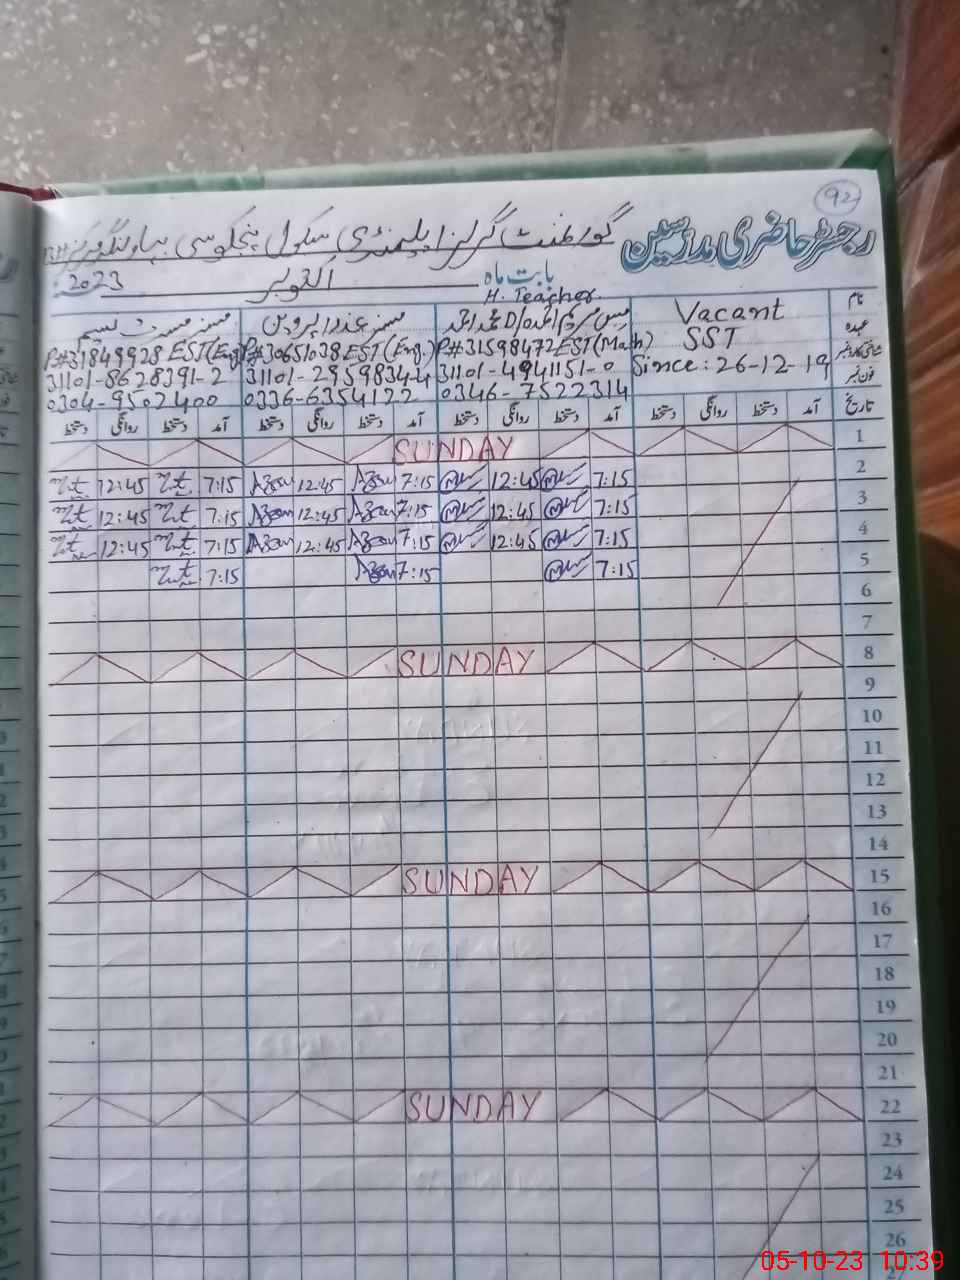 92
رجسٹر حاضری مدرسین
گورنمنٹ گرلز ایلیمنٹری سکول پنجکوسی بہاولنگر
بابت ماہ اکتوبر 2023
H. Teacher
نام Vacant مس مریم D/o مسز عذرا پروین مسز مسرت نسیم
عہدہ SST P#31598472 EST(Math) P#30651038 EST(Eng.) P#31849928 EST(Eng)
Since: 26-12-19 31101-4941151-0 31101-2959834-4 31101-8628391-2
فون نمبر 0346-7522314 0336-6354122 0304-9502400
تاریخ آمد دستخط روانگی دستخط آمد دستخط روانگی دستخط آمد دستخط روانگی دستخط آمد دستخط روانگی دستخط
1 SUNDAY
2 7:15 12:45 7:15 12:45 7:15 12:45
3 7:15 12:45 7:15 12:45 7:15 12:45
4 7:15 12:45 7:15 12:45 7:15 12:45
5 7:15 7:15 7:15
6
7
8 SUNDAY
9
10
11
12
13
14
15 SUNDAY
16
17
18
19
20
21
22 SUNDAY
23
24
25
26
05-10-23 10:39